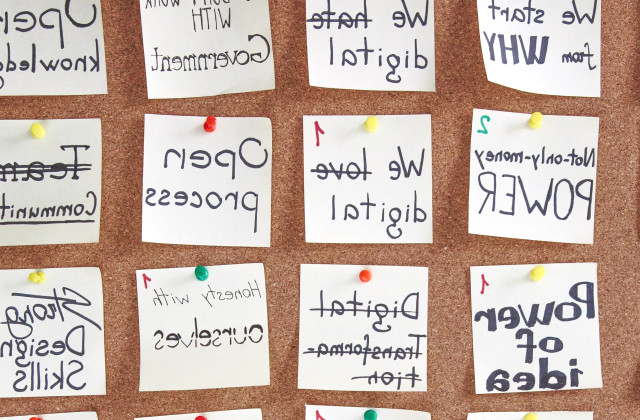 Open
knowledg
WITH
Government
We hate
digital
We start
from WHY
Team
Communit
Open
process
1
We love
digital
2
Not-only-money
POWER
Strong
Design
Skills
1
Honesty with
ourselves
Digital
Transforma-
tion
1
Power
of
idea
1